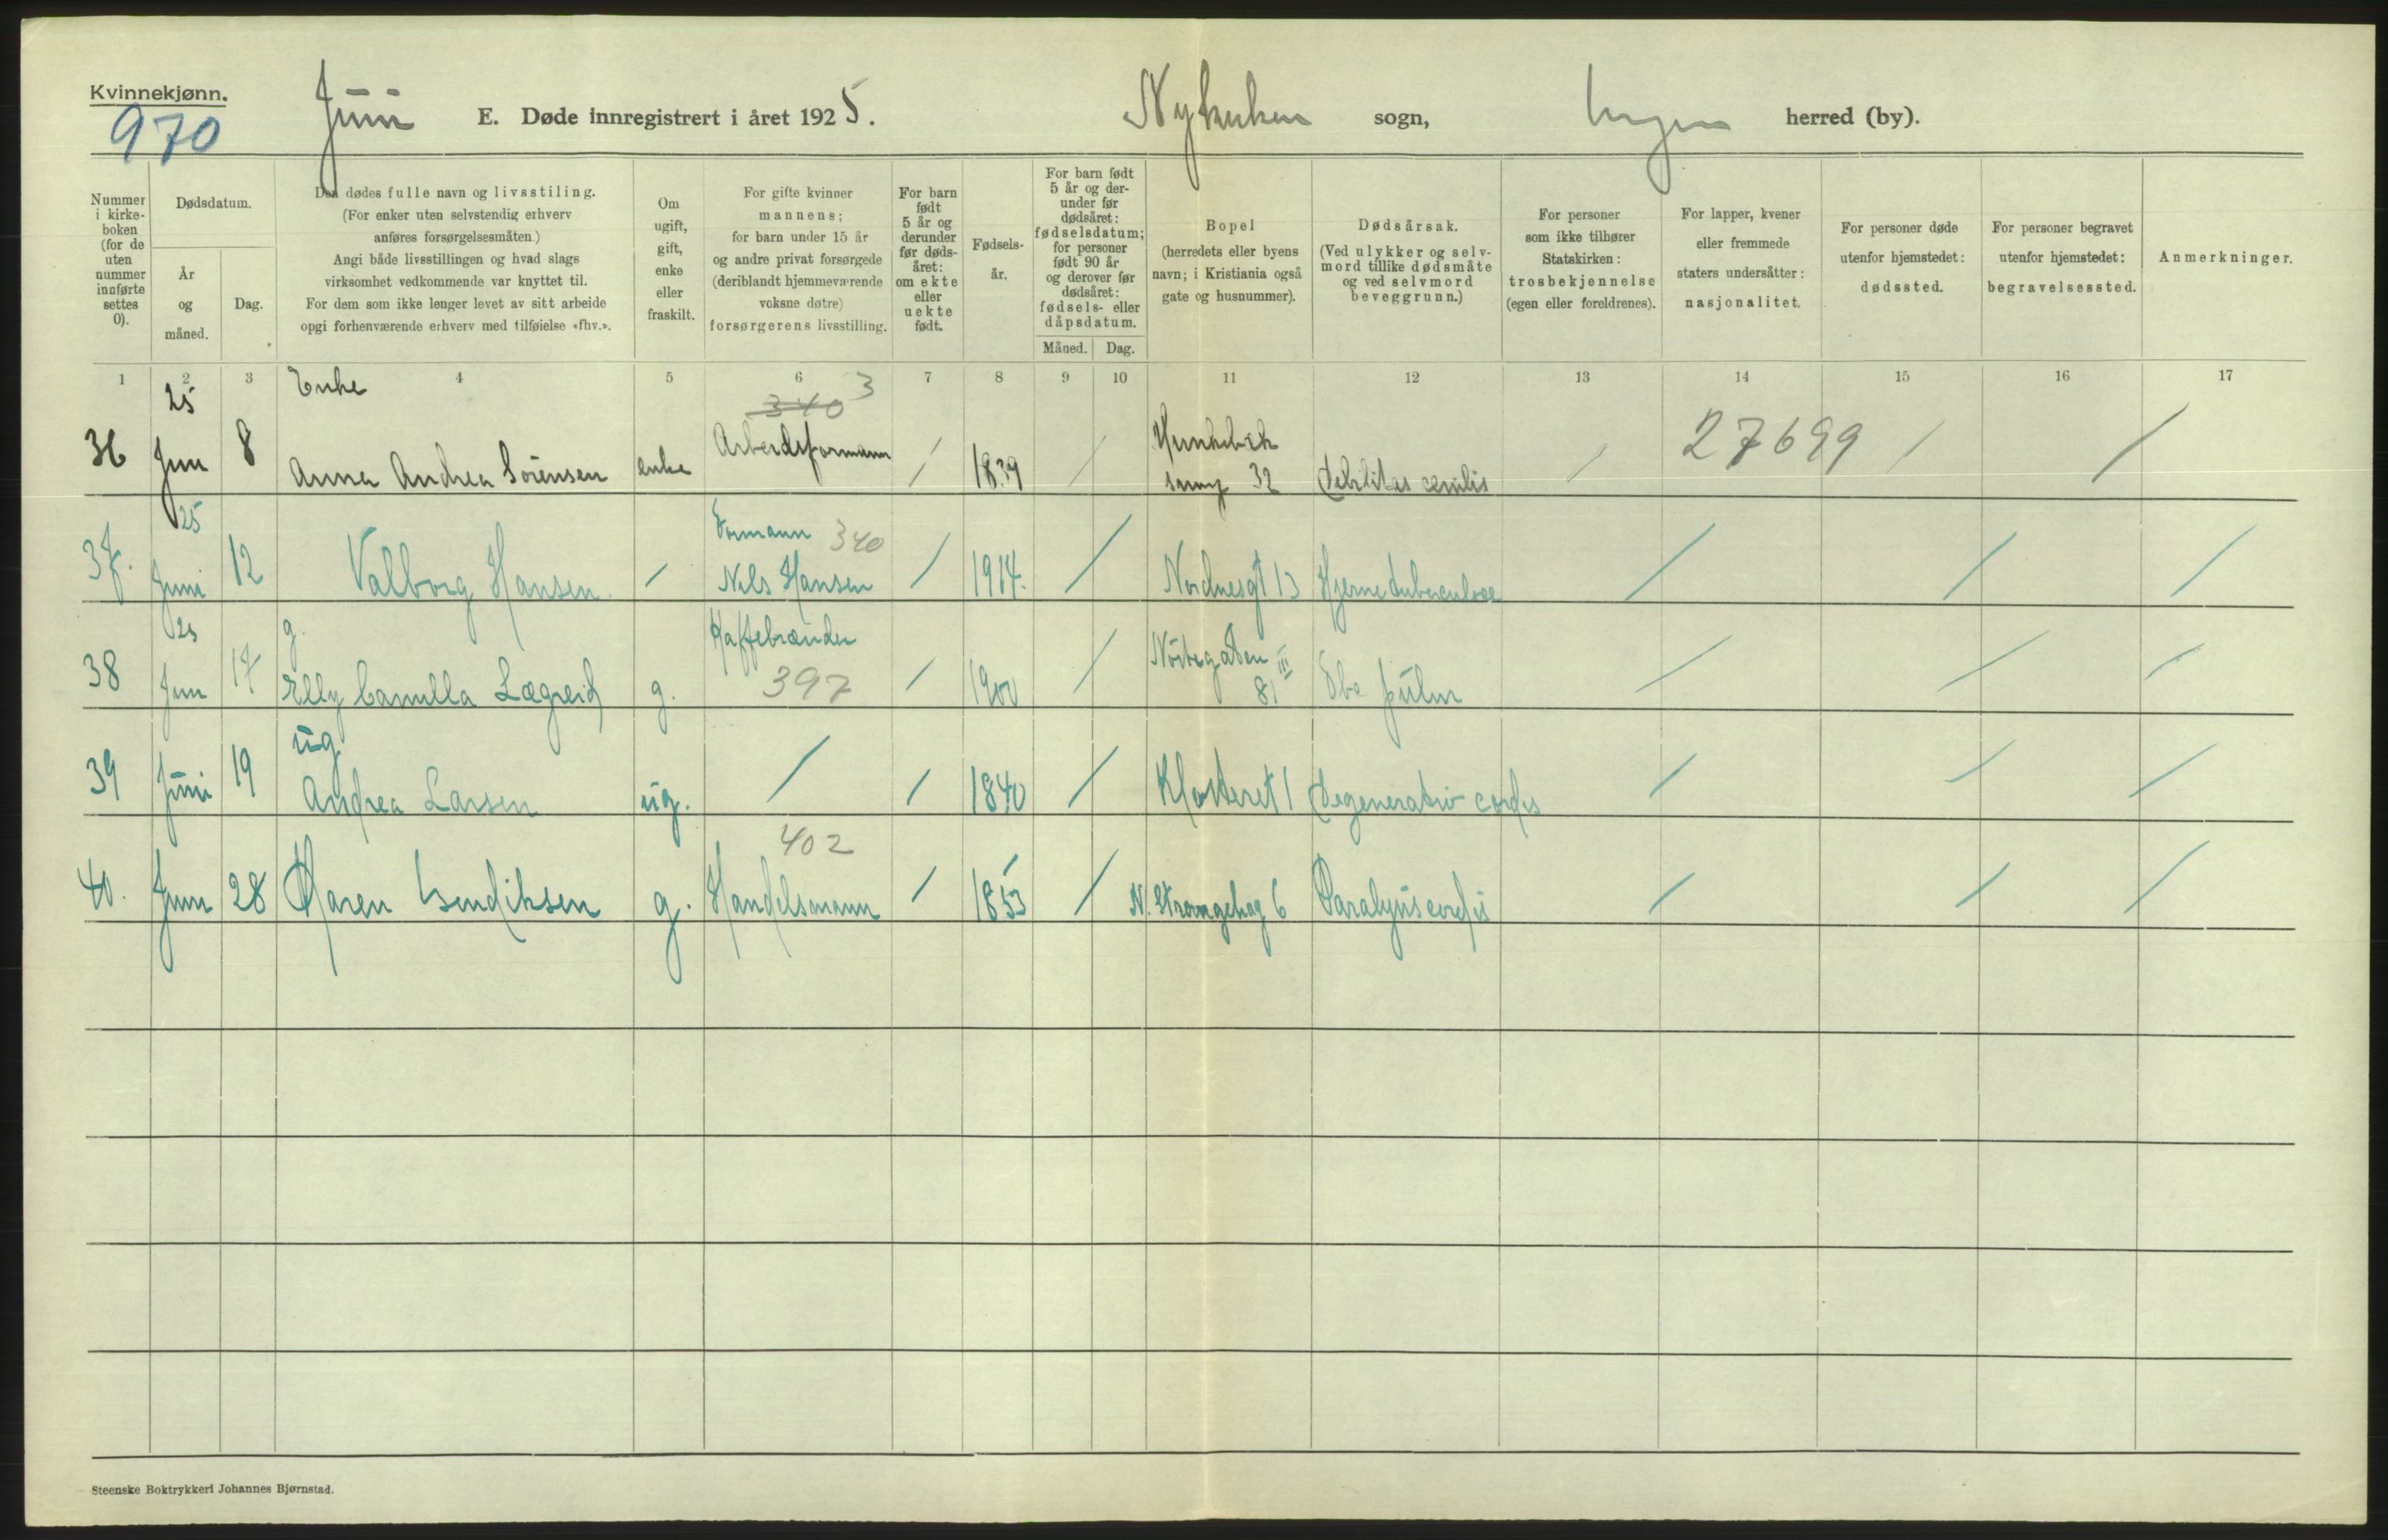 Kvinnekjønn.
970
Juni
E. Døde innregistrert i året 1925.
Nykirken sogn,
herred (by).
Nummer i kirke-boken (for de uten nummer innførte settes 0).
Dødsdatum.
År og måned.
Dag.
Den dødes fulle navn og livsstiling.
(For enker uten selvstendig erhverv
anføres forsørgelsesmåten.)
Angi både livsstillingen og hvad slags
virksomhet vedkommende var knyttet til.
For dem som ikke lenger levet av sitt arbeide
opgi forhenværende erhverv med tilføielse «fhv.».
Om ugift, gift, enke eller fraskilt.
For gifte kvinner
mannens;
for barn under 15 år
og andre privat forsørgede
(deriblandt hjemmeværende
voksne døtre)
forsørgerens livsstilling.
For barn født 5 år og derunder før døds-året: om ekte eller uekte født.
Fødsels-år.
For barn født 5 år og der-under før dødsåret: fødselsdatum; for personer født 90 år og derover før dødsåret: fødsels- eller dåpsdatum.
Måned. Dag.
Bopel
(herredets eller byens
navn; i Kristiania også
gate og husnummer).
Dødsårsak.
(Ved ulykker og selv-
mord tillike dødsmåte
og ved selvmord
beveggrunn.)
For personer
som ikke tilhører
Statskirken:
trosbekjennelse
(egen eller foreldrenes).
For lapper, kvener
eller fremmede
staters undersåtter:
nasjonalitet.
For personer døde
utenfor hjemstedet:
dødssted.
For personer begravet
utenfor hjemstedet:
begravelsessted.
Anmerkninger.
1 2 3 4 5 6 7 8 9 10 11 12 13 14 15 16 17
25 Enke 340 3
36 Juni 8 Anna Andrea Sörensen enke Arbeidsformann / 1839 / 32 debilitas senilis / 27699 / /
25 Formann 340
37. Juni 12 Valborg Hansen / Nils Hansen / 1914. / Nordnesgt 13 Hjernetuberculose / / /
25 g. Kaffebrænder Nöstegaten III
38 Juni 17 Elly Camilla Lægreid g. 397 / 1900 / 81 Tbc pulm / / /
ug
39 Juni 19 Andrea Larsen ug. / / 1840 / Klosteret 1 degeneratio cordis / / /
402
40. Juni 28 Karen Bendiksen g. Handelsmann / 1853 / N. Strangehag 6 Paralysis cordis / / /
Steenske Boktrykkeri Johannes Bjørnstad.